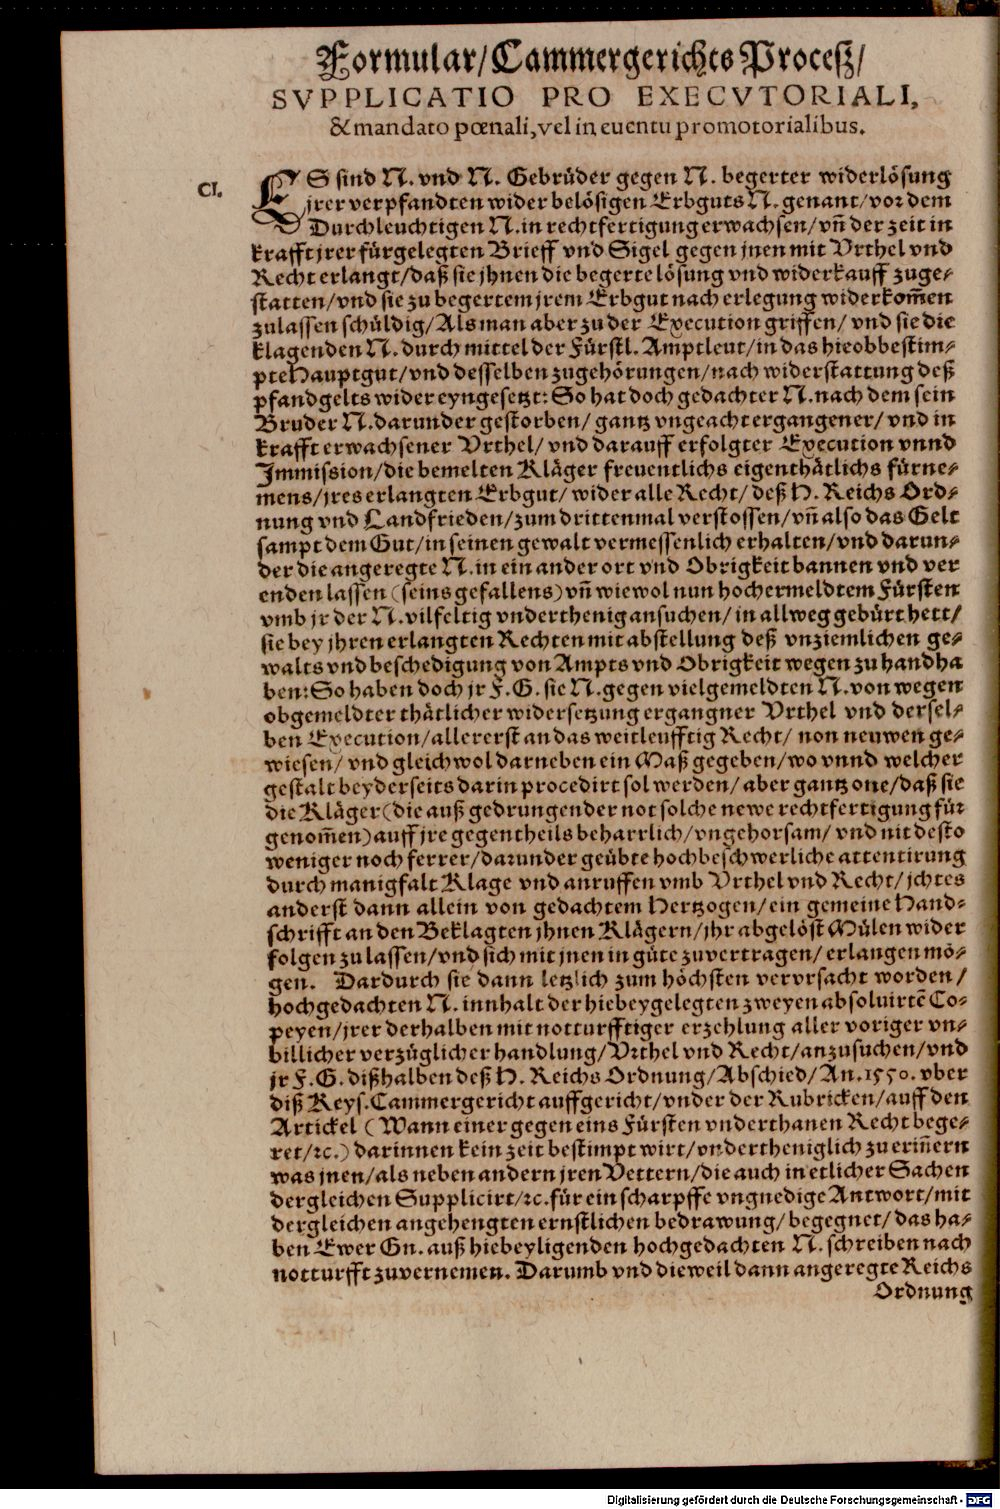 Formular/Cammergerichts Proceß/
SVPPLICATIO PRO EXECVTORIALI,
& mandato pœnali, vel in euentu promotorialibus.
CI.
ES sind N. vnd N. Gebrüder gegen N. begerter widerlösung
jrer verpfandten wider belösigen Erbguts N. genant/vor dem
Durchleuchtigen N. in rechtfertigung erwachsen/vñ der zeit in
krafft jrer fürgelegten Brieff vnd Sigel gegen jnen mit Vrthel vnd
Recht erlangt/daß sie jhnen die begerte lösung vnd widerkauff zuge-
statten/vnd sie zu begertem jrem Erbgut nach erlegung widerkom̃en
zulassen schüldig/Als man aber zu der Execution griffen/ vnd sie die
klagenden N. durch mittel der Fürstl. Amptleut/in das hieobbestim-
pte Hauptgut/vnd desselben zugehörungen/nach widerstattung deß
pfandgelts wider eyngesetzt: So hat doch gedachter N. nach dem sein
Bruder N. darunder gestorben/ gantz vngeacht ergangener/ vnd in
krafft erwachsener Vrthel/ vnd darauff erfolgter Execution vnnd
Immission/die bemelten Kläger freuentlichs eigenthätlichs fürne-
mens/jres erlangten Erbgut/ wider alle Recht/ deß H. Reichs Ord-
nung vnd Landfrieden/zum drittenmal verstossen/vñ also das Gelt
sampt dem Gut/in seinen gewalt vermessenlich erhalten/vnd darun-
der die angeregte N. in ein ander ort vnd Obrigkeit bannen vnd ver
enden lassen (seins gefallens) vñ wiewol nun hochermeldtem Fürsten
vmb jr der N. vilfeltig vnderthenig ansuchen/ in allweg gebürt hett/
sie bey jhren erlangten Rechten mit abstellung deß vnziemlichen ge-
walts vnd beschedigung von Ampts vnd Obrigkeit wegen zu handha
ben: So haben doch jr F. G. sie N. gegen vielgemeldten N. von wegen
obgemeldter thätlicher widersetzung ergangner Vrthel vnd dersel-
ben Execution/allererst an das weitleufftig Recht/ non neuwen ge-
wiesen/ vnd gleichwol darneben ein Maß gegeben/wo vnnd welcher
gestalt beyderseits darin procedirt sol werden/ aber gantz one/daß sie
die Kläger (die auß gedrungender not solche newe rechtfertigung für
genom̃en) auff jre gegentheils beharrlich/vngehorsam/ vnd nit desto
weniger noch ferrer/darunder geübte hochbeschwerliche attentirung
durch manigfalt Klage vnd anruffen vmb Vrthel vnd Recht/ jchtes
anderst dann allein von gedachtem Hertzogen/ein gemeine Hand-
schrifft an den Beklagten jhnen Klägern/jhr abgelöst Mülen wider
folgen zu lassen/vnd sich mit jnen in güte zuvertragen/ erlangen mö-
gen. Dardurch sie dann letzlich zum höchsten vervrsacht worden/
hochgedachten N. innhalt der hiebeygelegten zweyen absoluirtẽ Co-
peyen/jrer derhalben mit notturfftiger erzehlung aller voriger vn-
billicher verzüglicher handlung/Vrthel vnd Recht/anzusuchen/vnd
jr F. G. dißhalben deß H. Reichs Ordnung/Abschied/An. 1550. vber
diß Keys. Cammergericht auffgericht/vnder der Rubricken/auff den
Artickel (Wann einer gegen eins Fürsten vnderthanen Recht bege-
ret/ꝛc.) darinnen kein zeit bestimpt wirt/vnderthenigliche zu erin̄ern
was jnen/als neben andern jren Vettern/die auch in etlicher Sachen
dergleichen Supplicirt/ꝛc. für ein scharpffe vngnedige Antwort/mit
dergleichen angehengten ernstlichen bedrawung/ begegnet/ das ha-
ben Ewer Gn. auß hiebeyligenden hochgedachten N. schreiben nach
notturfft zuvernemen. Darumb vnd dieweil dann angeregte Reichs
Ordnung
Digitalisierung gefördert durch die Deutsche Forschungsgemeinschaft - DFG